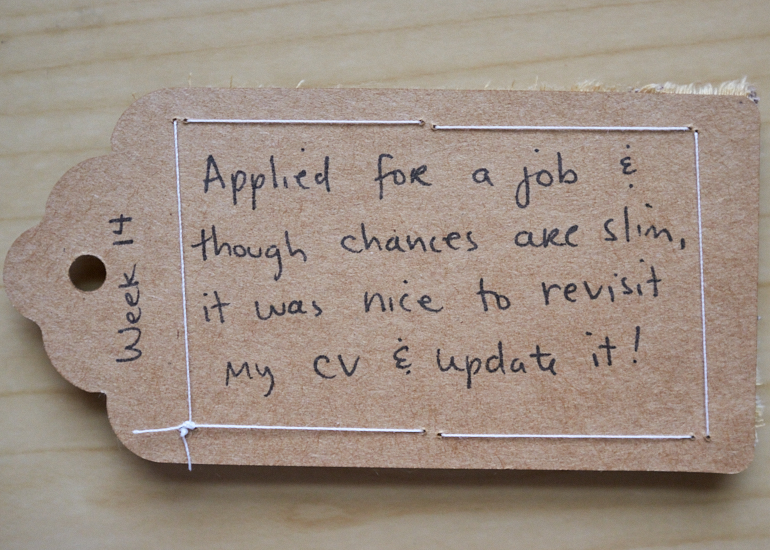 Week 14
Applied for a job &
though chances are slim,
it was nice to revisit
my CV & update it!